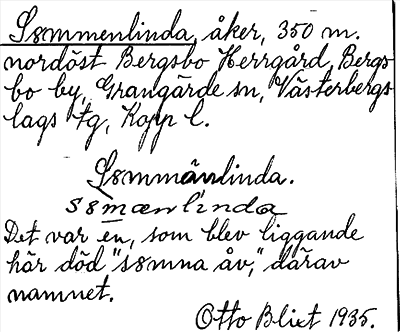 Sømmenlinda, åker, 350 m.
nordöst Bergsbo Herrgård, Bergs
bo by, Grangärde sn, Västerbergs
lags tg, Kopp l.
Sømmänlinda.
sømænlinda
Det var en, som blev liggande
här död "sømna åv," därav
namnet.
Otto Blixt 1935.